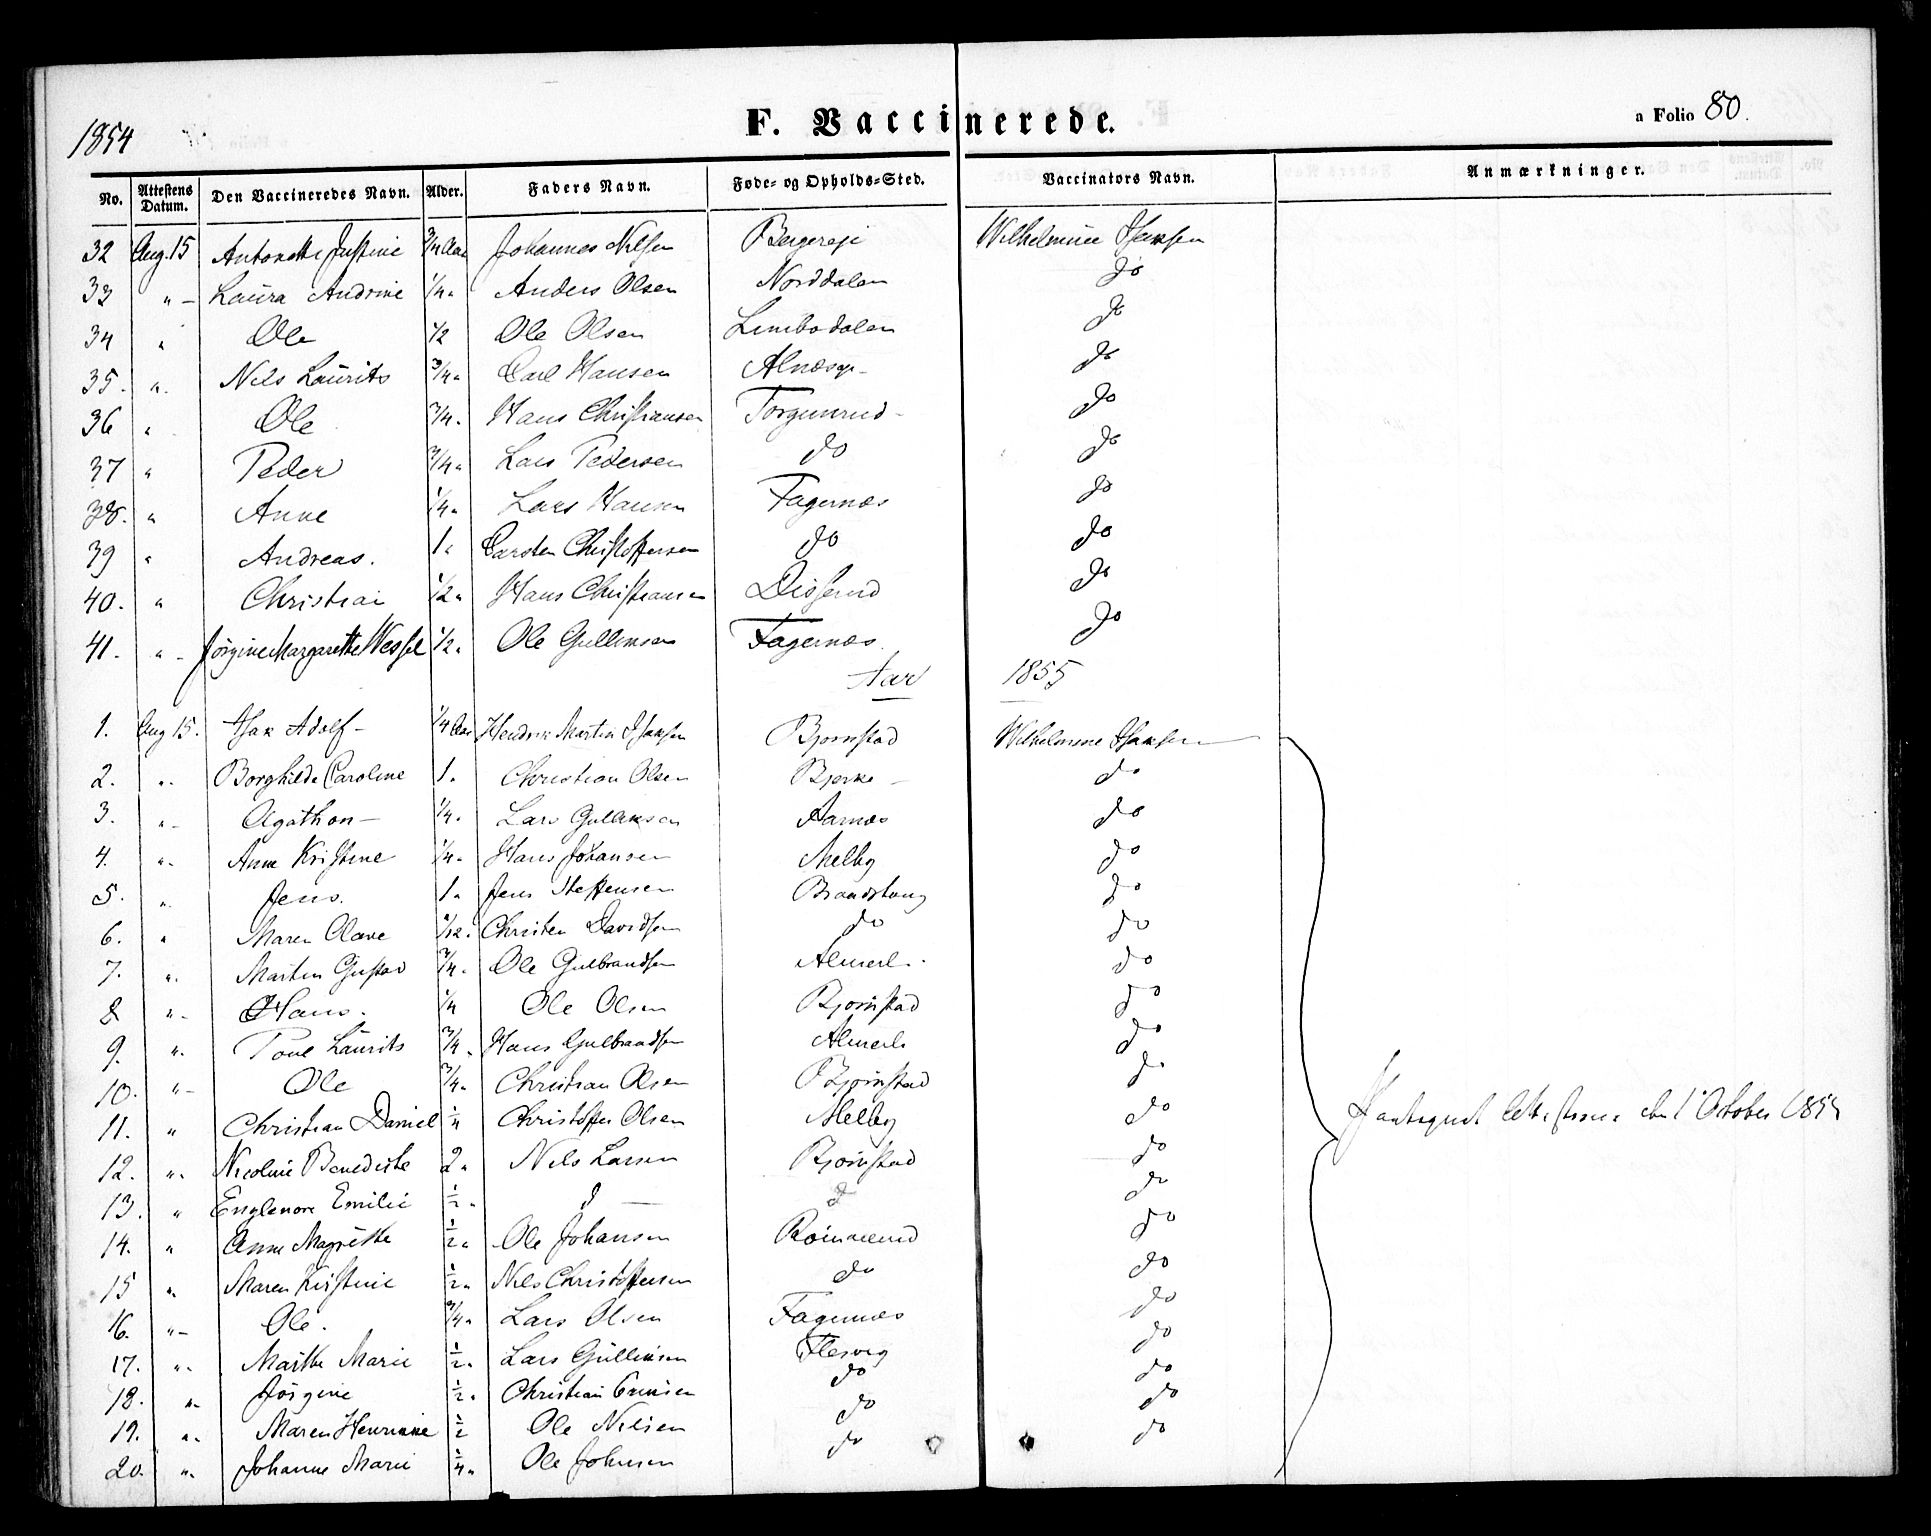 1854
F. Vaccinerede.
a Folio 80.
No. Attestens Datum. Den Vaccineredes Navn. Alder. Faders Navn. Føde- og Opholds-Sted. Vaccinators Navn. Anmærkninger.
32 Aug. 15 Antonette Justine 3/4 Aar Johannes Nilsen Wilhelmine Isaksen
33 " Laura Andrine 1/4 " Anders Olsen Norddalen do
34 " Ole 1/2 Ole Olsen Limbodalen do
35. " Nils Laurits 3/4 " Carl Hansen do
36 " Ole 3/4 " Hans Christiansen Torgunrud do
37 " Peder 3/4 " Lars Pedersen do do
38. " Anne 1/4 " Lars Hansen Fagernæs do
39 " Andreas. 1 " Carsten Christoffersen do do
40. " Christian 1/2 " Hans Christiansen Disserud do
41. " Jörgine Margarethe Wessel 1/2 " Ole Gulliksen Fagernæs do
Aar 1855
1. Aug 15. Isak Adolf 1/4 Aar Hendrik Martin Isaksen Bjornstad Wilhelmine Isaksen
2. " Borghilde Caroline 1 " Christian Olsen Bjerke do
3. " Agathon 1/4 " Lars Gulliksen Aarnæs do
4. " Anne Kristine 1/4 " Hans Johansen Melby do
5. " Jens. 1 " Jens Steffensen do
6. " Maren Olave Christen Davidsen do do
7. " Martin Gustav 3/4 " Ole Gulbrandsen Almerli do
8 " Hans. 1/4 Ole Olsen Bjornstad do
9. " Poul Laurits 3/4 " Hans Gulbrandsen Almerli do
10. " Ole 3/4 " Christian Olsen Bjornstad do
11. " Christian Daniel 1/4 Christoffer Olsen Melby do
1 October 1855
12. " Nicoline Benedicte 2 " Nils Larsen Bjornstad do
13. " Englenore Emilie 1/2 " d d do
14. " Anne Magrethe 1/2 " Ole Johansen do
15 " Maren Kirstine 1/2 " Nils Christoffersen do do
16. " Ole. 3/4 " Lars Olsen Fagernæs do
17. " Marthe Marie 1/2 " Lars Gulliksen Flesvig do
18. " Jörgine 1/2 " Christian do do
19. " Maren Henrikke 1/2 Ole Nilsen do do
20. " Johanne Marie 1/4 " Ole Johnsen do do